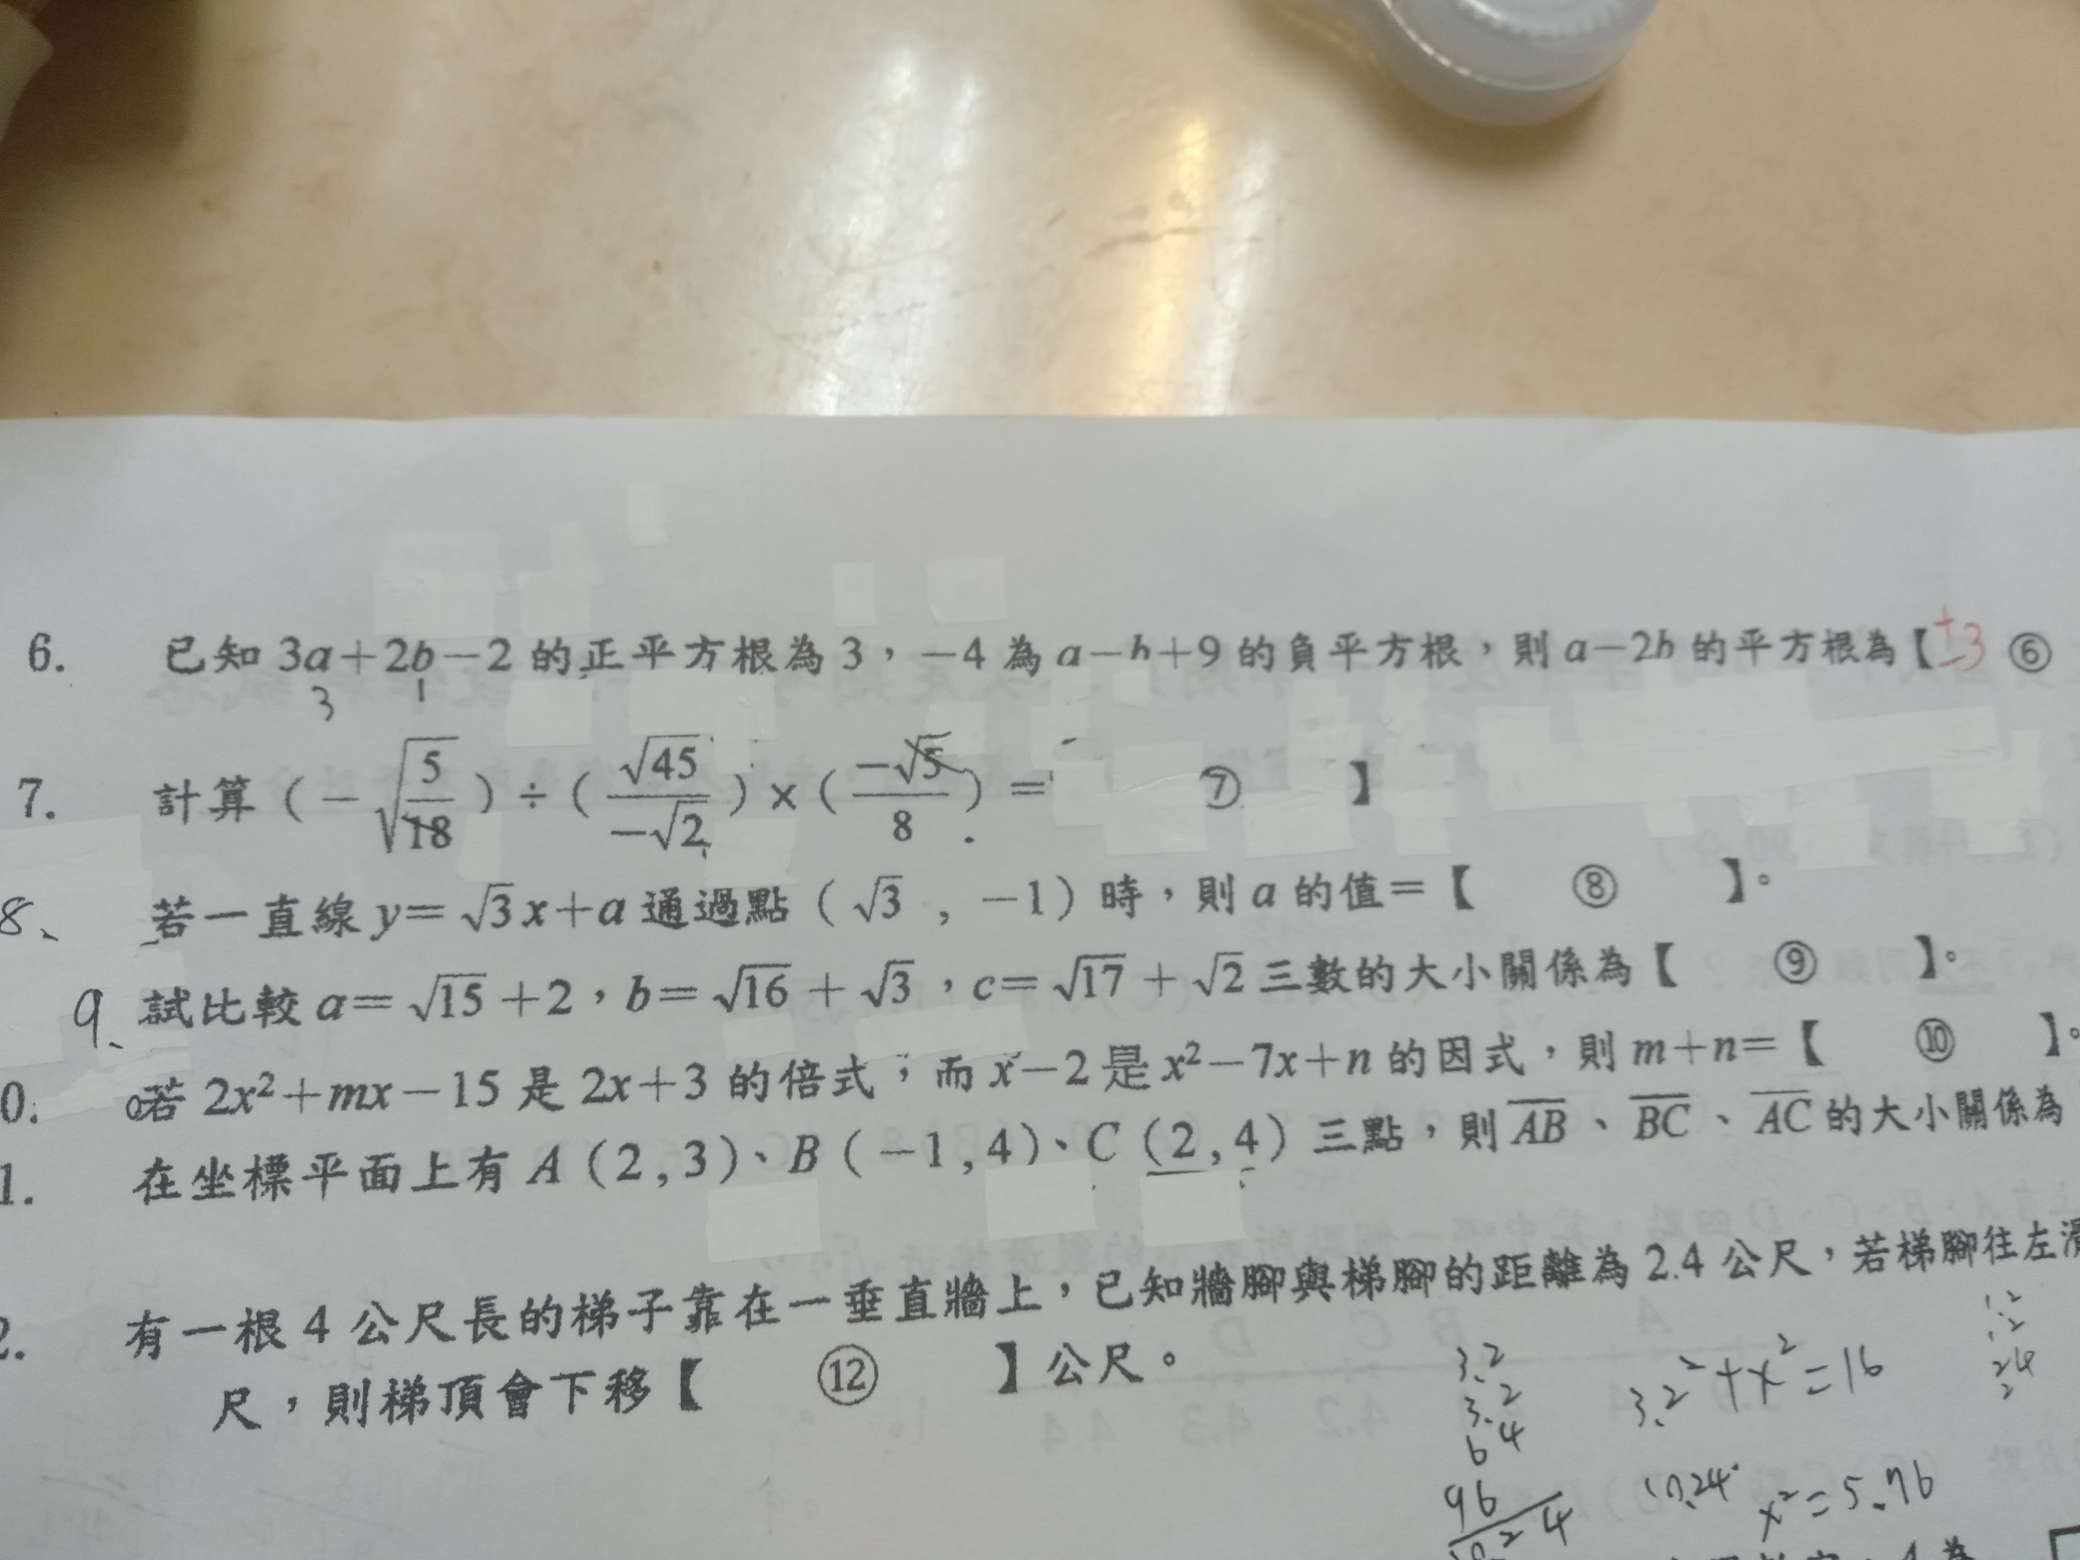 6. 已知 3a+2b−2 的正平方根為 3，−4 為 a−b+9 的負平方根，則 a−2b 的平方根為【±3 ⑥
3 1
7. 計算（−√(5/18)）÷（√45/−√2）×（−√5/8）= ⑦ 】
8、 若一直線 y=√3x+a 通過點（√3，−1）時，則 a 的值=【 ⑧ 】。
9、 試比較 a=√15+2，b=√16+√3，c=√17+√2 三數的大小關係為【 ⑨ 】。
0. 若 2x²+mx−15 是 2x+3 的倍式；而 x−2 是 x²−7x+n 的因式，則 m+n=【 ⑩ 】。
1. 在坐標平面上有 A（2,3）、B（−1,4）、C（2,4）三點，則 AB、BC、AC 的大小關係為
2. 有一根 4 公尺長的梯子靠在一垂直牆上，已知牆腳與梯腳的距離為 2.4 公尺，若梯腳往左滑
尺，則梯頂會下移【 ⑫ 】公尺。
3.2
3.2
64
96
10.24
3.2²+x²=16
10.24
x²=5.76
1.2
1.2
24